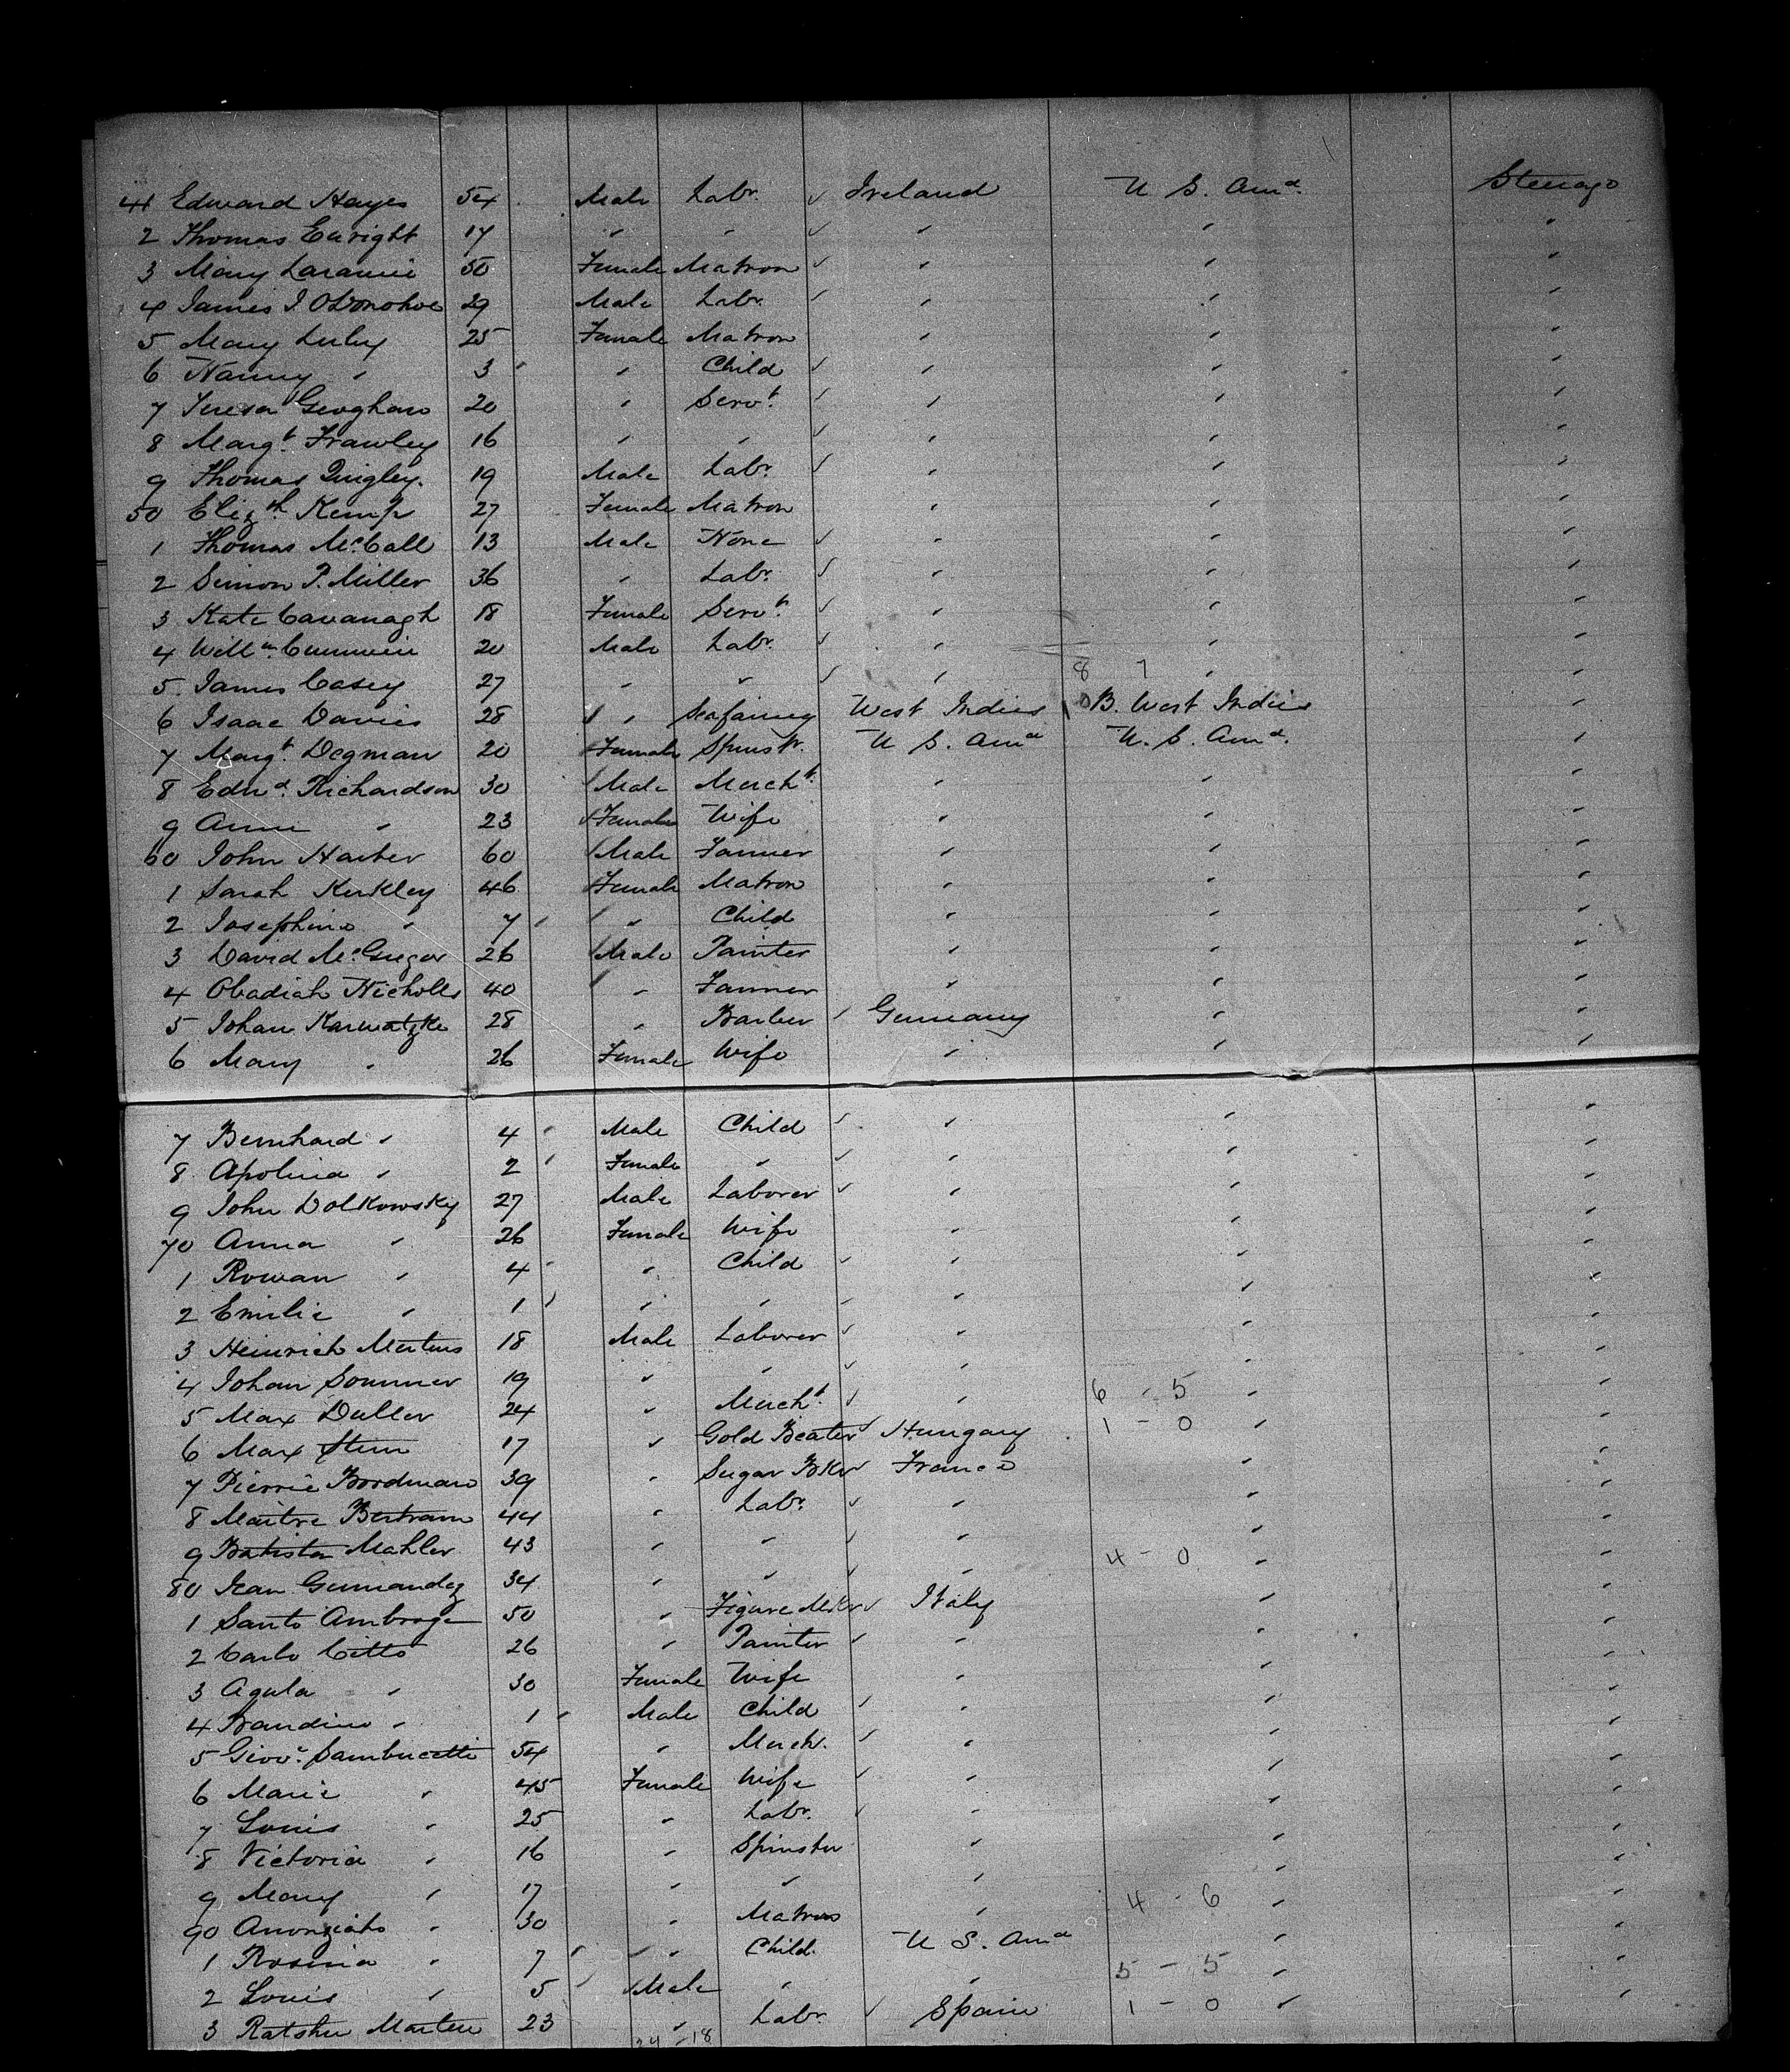 41 Edward Hayes 54 Male Labr. ✓ Ireland U S. Ama. Steerage
2 Thomas Enright 17 " " ✓ " " "
3 Mary 50 Female Matron ✓ " " "
4 James J. ODonohoe 29 Male Labr. ✓ " " "
5 Mary Luby 25 Female Matron " " "
6 Nanny " 3 " Child ✓ " " "
7 Teresa Geoghan 20 " Servt. ✓ " " "
8 Margt. Frawley 16 " " ✓ " " "
9 Thomas Quigley. 19 Male Labr. ✓ " " "
50 Elizth. Kemp 27 Female Matron " " "
1 Thomas McCall 13 Male None ✓ " " "
2 Simon P. Miller 36 " Labr. ✓ " " "
3 Kate Cavanagh 18 Female Servt. ✓ " " "
4 Willm. 20 Male Labr. ✓ " " "
5. James Casey 27 " " ✓ " 8 7 " "
6 Isaac Davies 28 " Seafaring West Indies B. West Indies
7 Margt. Degman 20 Female Spinstr. U S. Ama U. S. Ama. "
8 Edwd. Richardson 30 Male Mercht. " " "
9 Annie " 23 Female Wife " " "
60 John Harter 60 Male Farmer " " "
1 Sarah Kerkley 46 Female Matron " " "
2 Josephine " 7 " Child " " "
3 David McGregor 26 Male Painter " " "
4 Obadiah Nicholls 40 " Farmer " " "
5 Johan Karwatzke 28 " Barber ✓ Germany " "
6 Mary " 26 Female Wife " " "
7 Bernhard " 4 Male Child ✓ " " "
8 Apolina " 2 Female " ✓ " " "
9 John Dolkowsky 27 Male Laborer ✓ " " "
70 Anna " 26 Female Wife " " "
1 Rowan " 4 " Child ✓ " " "
2 Emilie " 1 " " ✓ " " "
3 Heinrich Mertens 18 Male Laborer ✓ " " "
4 Johan Sommer 19 " " ✓ " " "
5 Max Duller 24 " Mercht. ✓ " 6 - 5 " "
6 Max Stern 17 " Gold Beater ✓ Hungary 1 - 0 " "
7 Pierrie Bordman 39 " Sugar Bkr ✓ France " "
8 Maitre Bertram 44 " Labr. ✓ " " "
9 Batista Mahler 43 " " ✓ " " "
80 Jean 34 " " ✓ " 4 - 0 " "
1 Santo Ambroge 50 " Figure Mkr ✓ Italy " "
2 Carlo Citto 26 " Painter ✓ " " "
3 Agula " 30 Female Wife " " "
4 " 1 Male Child ✓ " " "
5 Giovi. Sambucetti 54 " Merch. ✓ " " "
6 Marie " 45 Female Wife ✓ " " "
7 Louis " 25 " Labr. ✓ " " "
8 Victoria " 16 " Spinster " " "
9 Mary " 17 " " " " "
90 " 30 " Matron " 4 - 6 " "
1 Rosina " 7 " Child. U S. Ama " "
2 Louis " 5 Male " " 5 - 5 " "
3 23 " Labr. ✓ Spain 1 - 0 " "
24 - 18